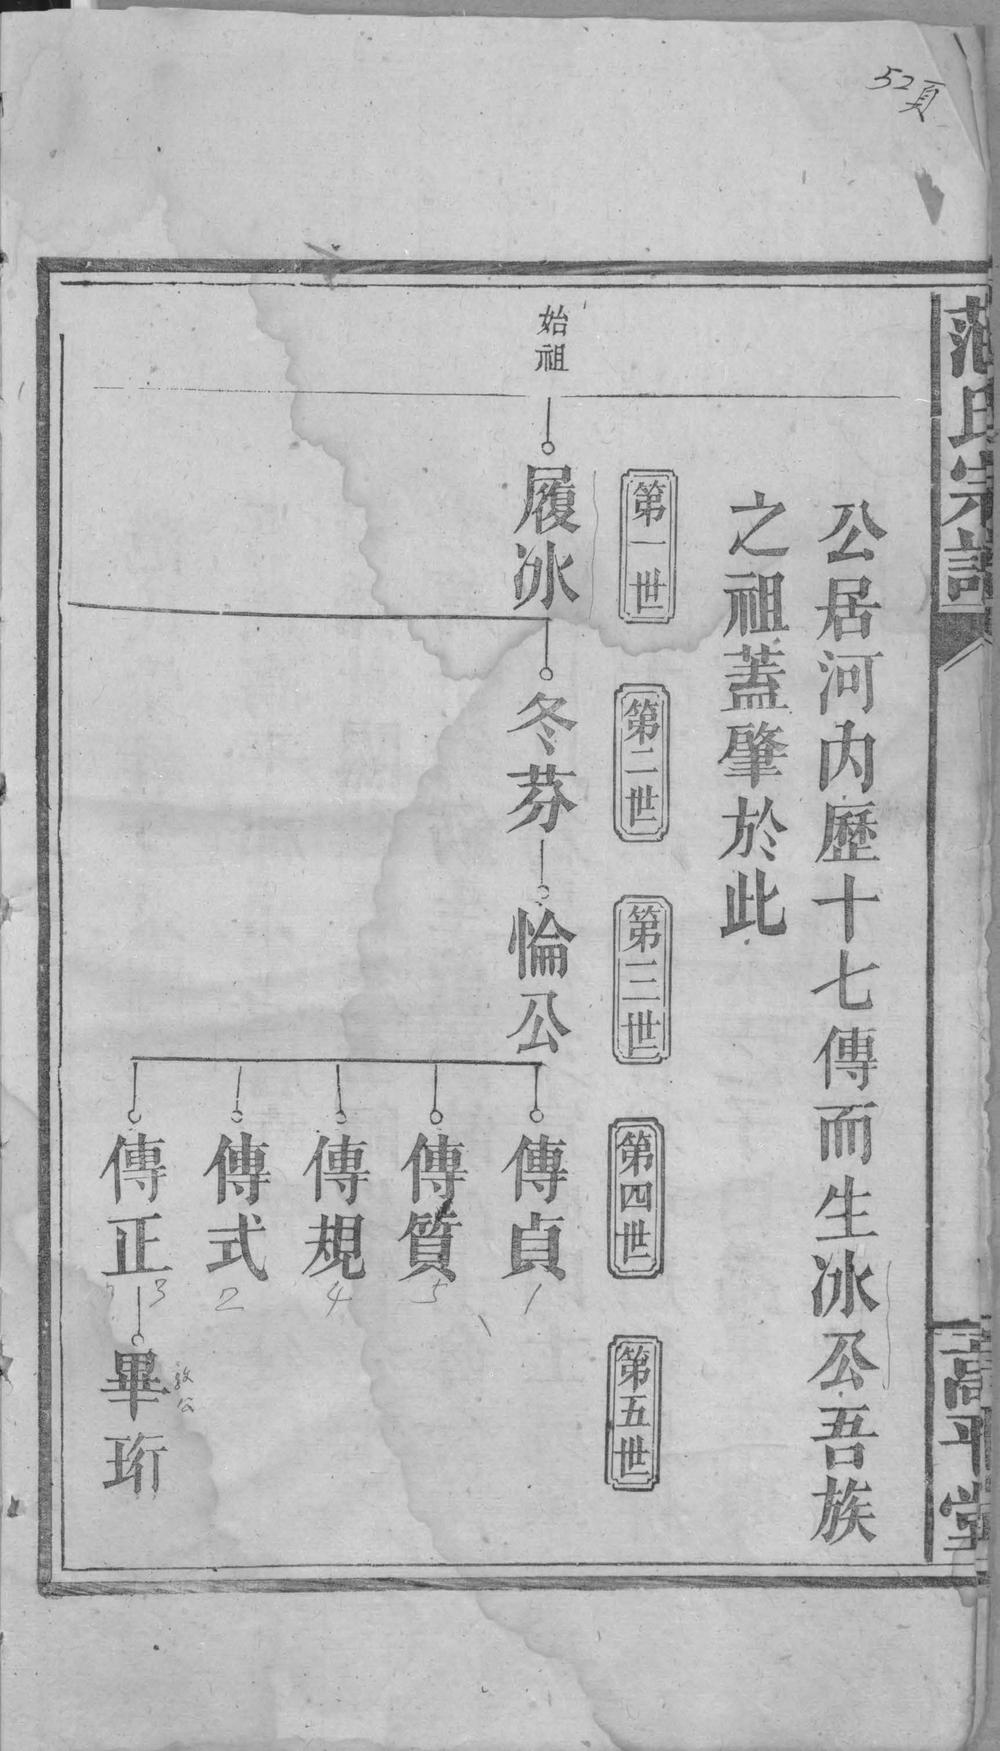 52頁
范氏宗譜
高平堂
公居河內歷十七傳而生冰公吾族
之祖蓋肇於此
第一世
第二世
第三世
第四世
第五世
始祖
履冰
冬芬
惀公
傳貞
1
傳質
5
傳規
4
傳式
2
傳正
3
畢珩
公